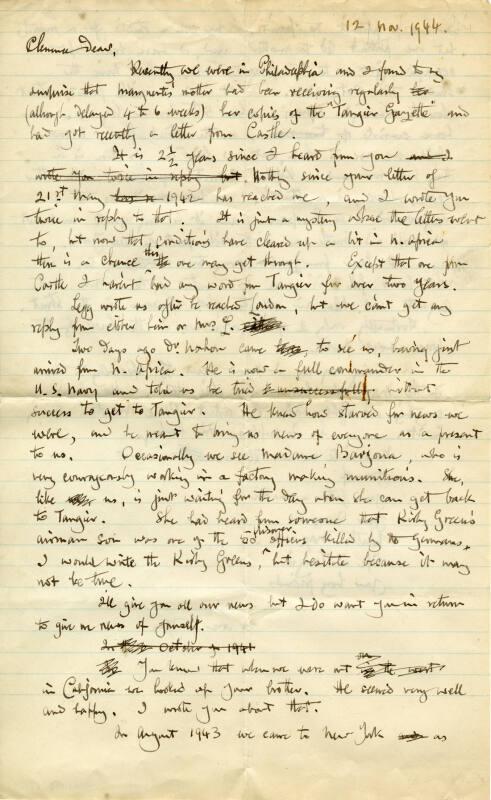 12 Nov. 1944.
Clemence dear,
Recently we were in Philadelphia and I found to my
surprise that Marguerite's mother had been receiving regularly
(although delayed 4 to 6 weeks) her copies of the "Tangier Gazette" and
had got recently a letter from Castle.
It is 2 1/2 years since I heard from you and I
wrote you twice in reply but. Nothing since your letter of
21st May 1942 has reached me, and I wrote you
twice in reply to that. It is just a mystery where the letters went
to, but now that conditions have cleared up a bit in N. Africa
there is a chance this one may get through. Except that one from
Castle I haven't had any word from Tangier for over two years.
Legg wrote us after he reached London, but we can't get any
reply from either him or Mrs L.
Two days ago Dr. came to see us, having just
arrived from N. Africa. He is now a full commander in the
U.S. Navy and told us he tried unsuccessfully without
success to get to Tangier. He knew how starved for news we
were, and he meant to bring us news of everyone as a present
to us. Occasionally we see Madame, who is
very courageously working in a factory making munitions. She,
like us, is just waiting for the day when she can get back
to Tangier. She had heard from someone that Kirby Green's
airman son was one of the 50 prisoner officers killed by the Germans.
I would write the Kirby Greens, but hesitate because it may
not be true.
I'll give you all our news but I do want you in return
to give me news of yourself.
In October 1941
You know that when we were out on
in California we looked up your brother. He seemed very well
and happy. I wrote you about that.
In August 1943 we came to New York as